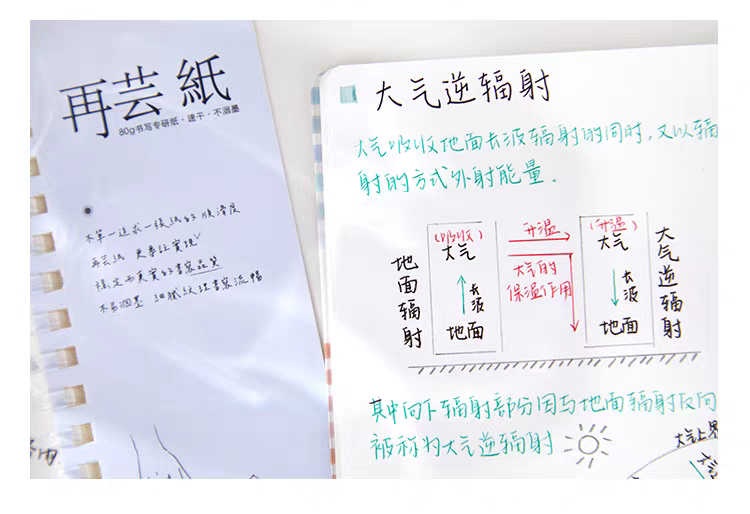 再芸紙
80g书写专研纸·速干·不洇墨
不單一追求一張紙的順滑度
再芸紙 更專註實現
穩定而真實的書寫品質
不易洇墨 細膩紋理書寫流暢
大气逆辐射
大气吸收地面长波辐射的同时,又以辐
射的方式外射能量.
地面辐射
(吸收)
大气
长波
地面
升温
大气的
保温作用
(升温)
大气
长波
地面
大气逆辐射
其中向下辐射部分因与地面辐射反向
被称为大气逆辐射
大气上界